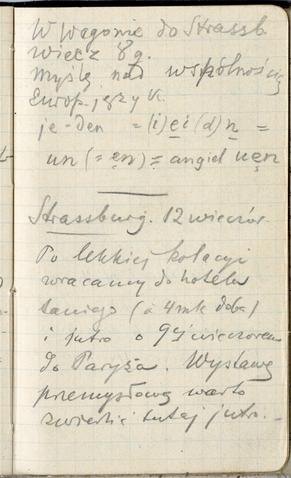 W wagonie do Strassb.
wiecz 8g.
myślę nad wspólnością
Europ. język.
je-den = (i) ei (d) n =
un (= en) = angiel uen
Strassburg. 12 wieczór.
Po lekkiej kolacyi
wracamy do hotelu
taniego (à 4 mk doba)
i jutro o 9tj wieczorem
do Paryża. Wystawę
przemysłową warto
zwiedzić tutaj jutro. –